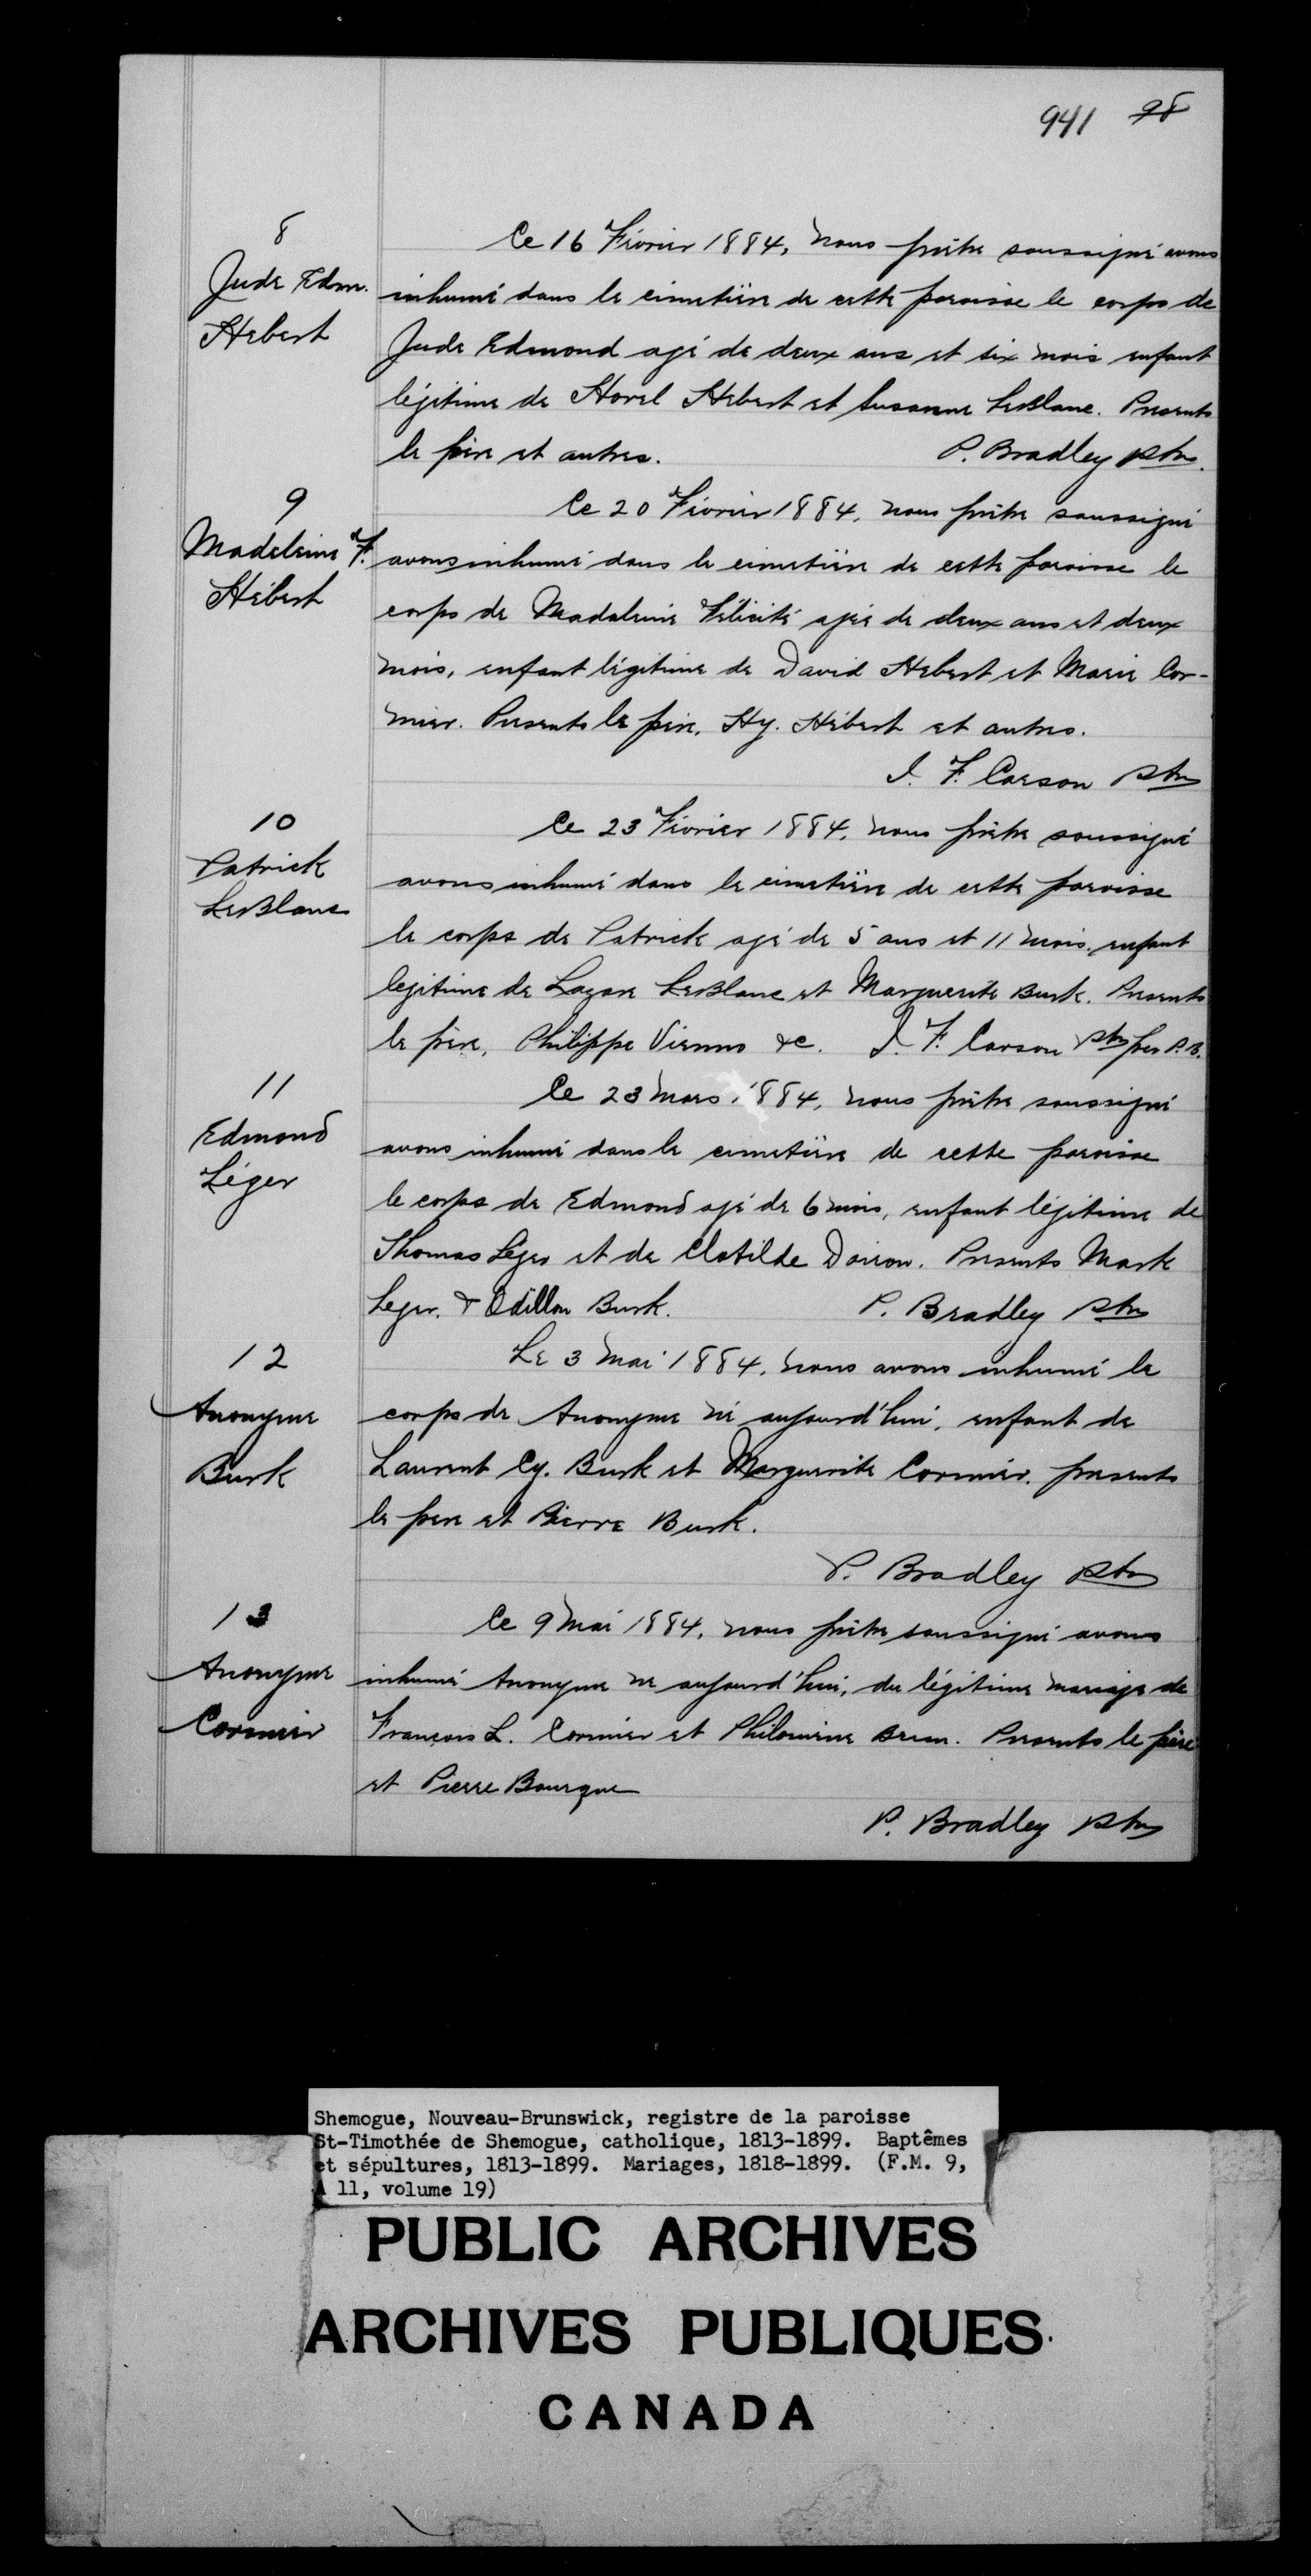 941 98
8
Jude Edm.
Hebert
Ce 16 Février 1884, nous prêtre soussigné avons
inhumé dans le cimetière de cette paroisse le corps de
Jude Edmond agé de deux ans et six mois enfant
légitime de Honel Hebert et Susanne LeBlanc. Presents
le père et autres. P. Bradley ptre.
9
Madeleine F.
Hébert
Ce 20 Février 1884, nous prêtre soussigné
avons inhumé dans le cimetière de cette paroisse le
corps de Madeleine Félicité agée de deux ans et deux
mois, enfant légitime de David Hebert et Marie Cor-
mier. Presents le père, Hy. Hébert et autres.
J. F. Carson ptre
10
Patrick
LeBlanc
Ce 23 Février 1884, nous prêtre soussigné
avons inhumé dans le cimetière de cette paroisse
le corps de Patrick agé de 5 ans et 11 mois, enfant
legitime de Lazare LeBlanc et Marguerite Burk. Presents
le père, Philippe Vienno &c. J. F. Carson ptre per P. B.
11
Edmond
Léger
Ce 23 Mars 1884, nous prêtre soussigné
avons inhumé dans le cimetière de cette paroisse
le corps de Edmond agé de 6 mois, enfant légitime de
Thomas Léger et de Clotilde Doiron. Presents Mark
Leger, & Odillon Burk. P. Bradley ptre
12
Anonyme
Burk
Le 3 Mai 1884, nous avons inhumé le
corps de Anonyme né aujourd'hui, enfant de
Laurent Cy. Burk et Marguerite Cormier. presents
le pere et Pierre Burk.
P. Bradley ptre
13
Anonyme
Cormier
Ce 9 Mai 1884, nous prêtre soussigné avons
inhumé Anonyme ne aujourd'hui, du légitime mariage de
Francois L. Cormier et Philomène Brun. Presents le père
et Pierre Bourque
P. Bradley ptre
Shemogue, Nouveau-Brunswick, registre de la paroisse
St-Timothée de Shemogue, catholique, 1813-1899. Baptêmes
et sépultures, 1813-1899. Mariages, 1818-1899. (F.M. 9,
A 11, volume 19)
PUBLIC ARCHIVES
ARCHIVES PUBLIQUES
CANADA